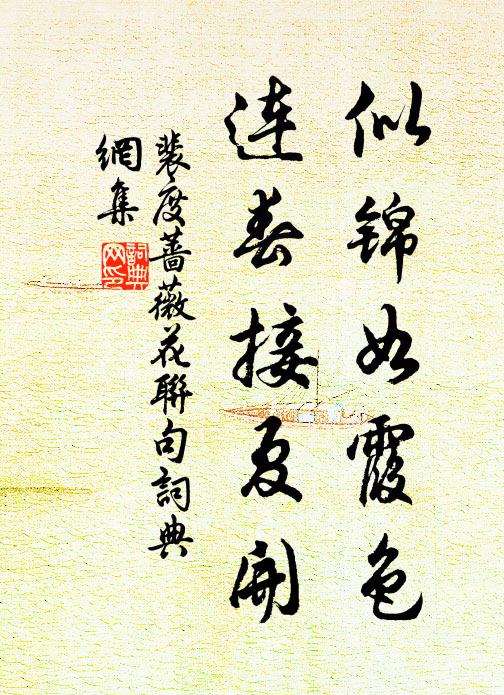 似锦如霞色
連春接夏開
裴度薔薇花聯句詞典
網集
詞典
网印